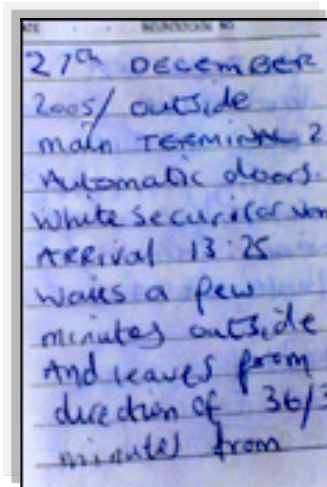 27th DECEMBER
2005/ outside
main TERMINAL 2
Automatic doors.
White Securicor van
ARRIVAL 13:25
Waits a few
minutes outside
And leaves from
direction of 36/3
minutes from